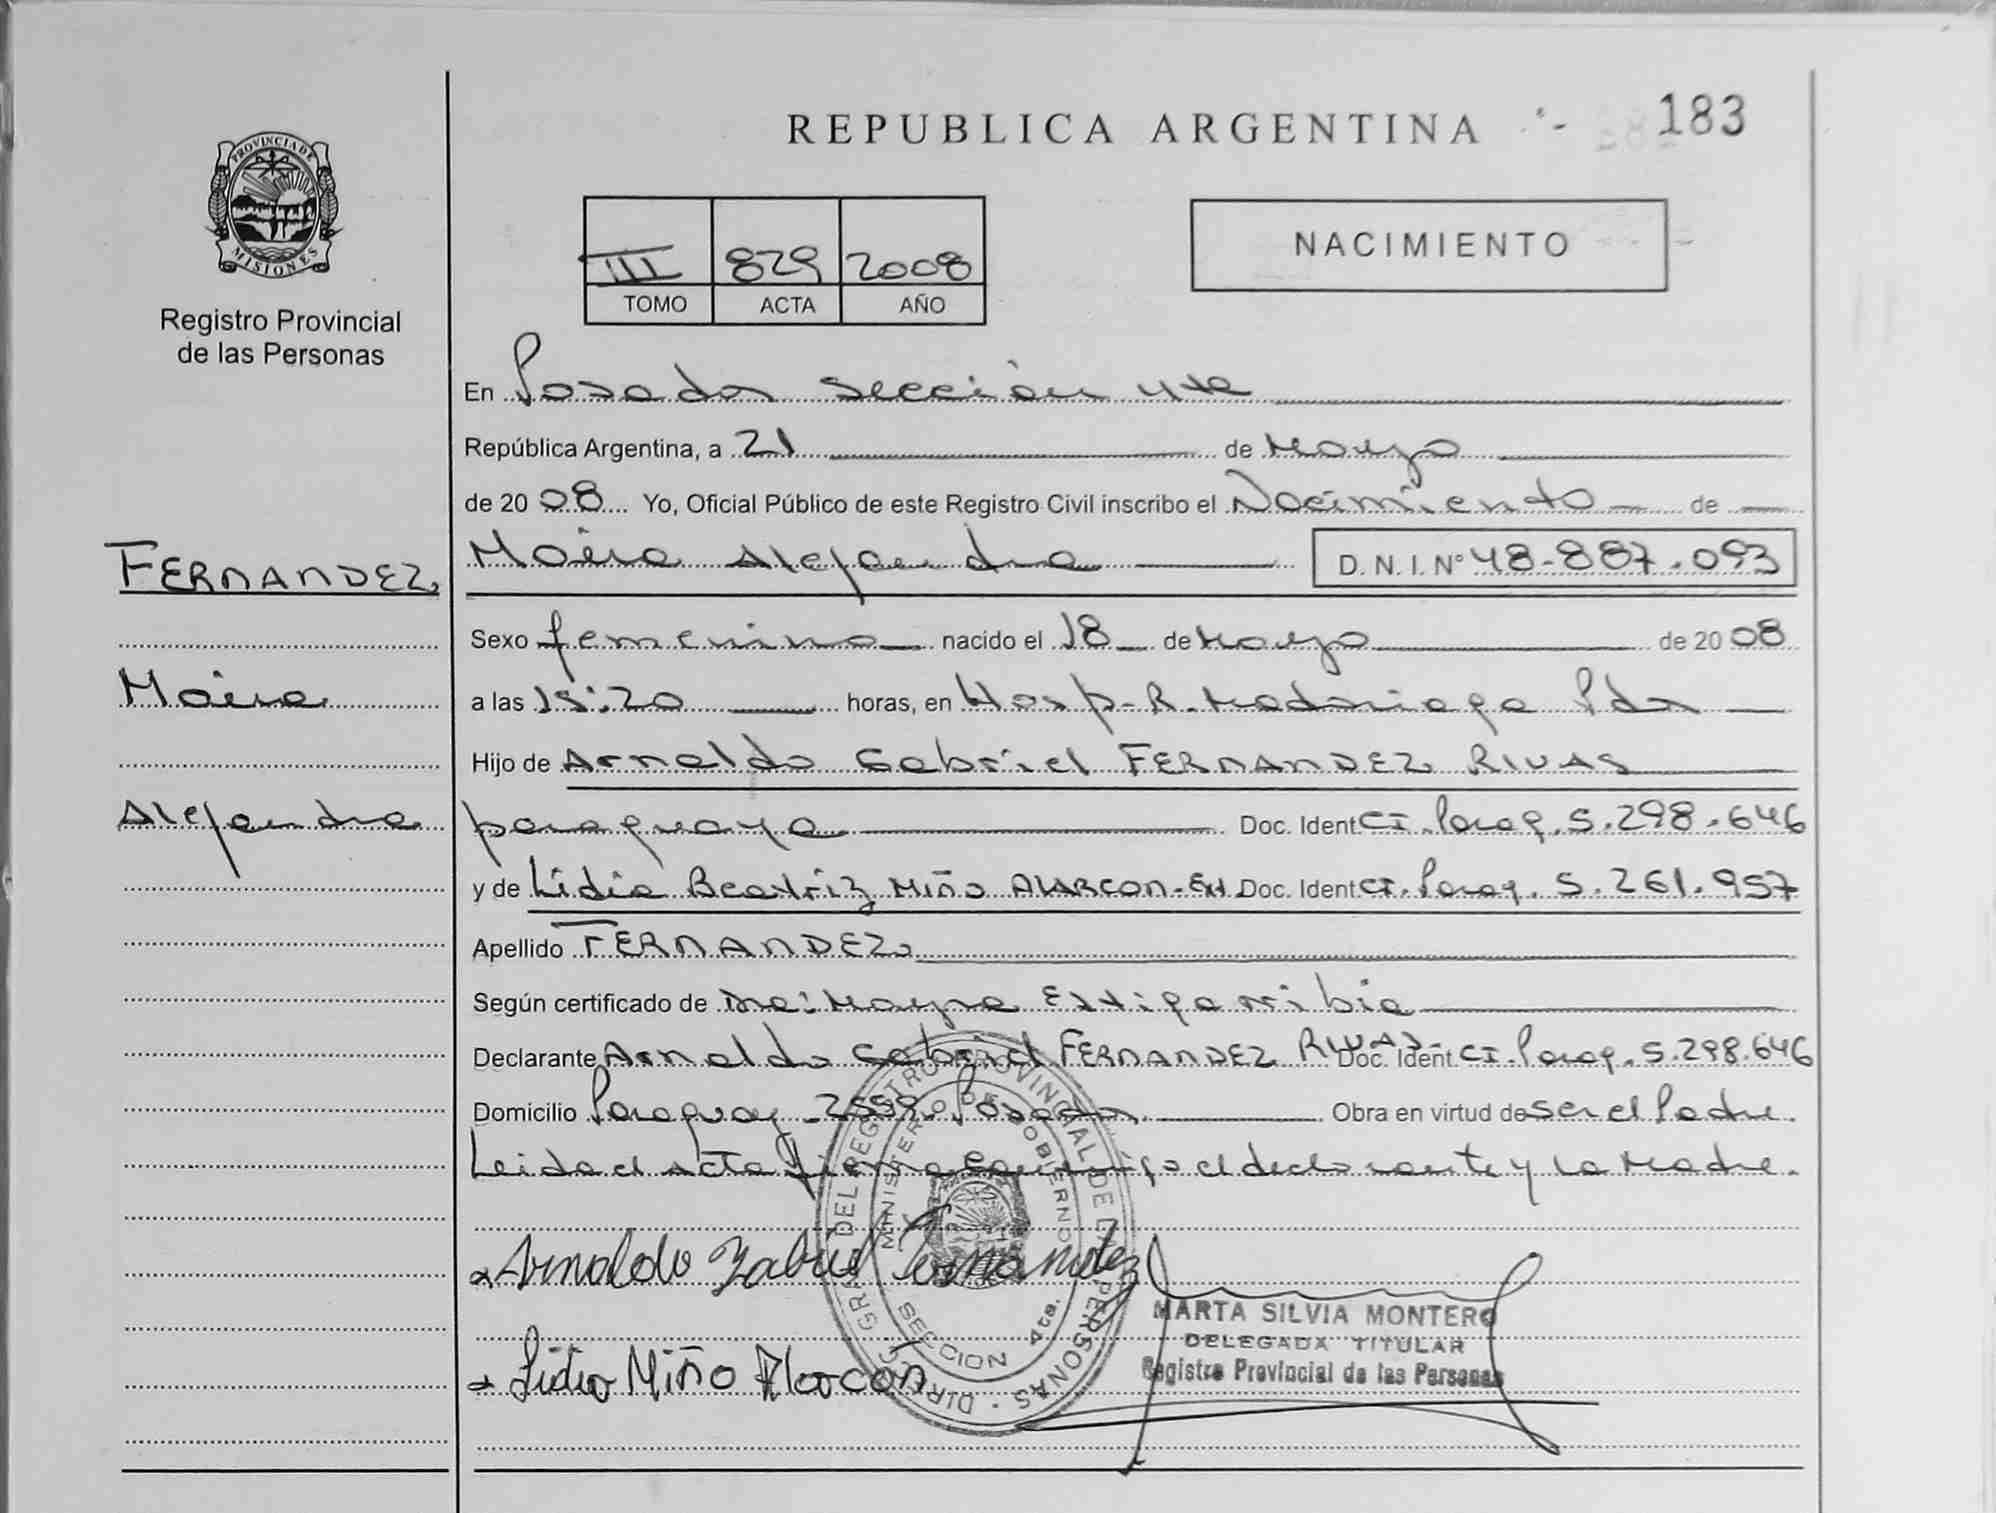 REPUBLICA ARGENTINA
183
PROVINCIA DE MISIONES
Registro Provincial
de las Personas
III 829 2008
TOMO ACTA AÑO
NACIMIENTO
En Posadas sección 4ta
República Argentina, a 21 de Mayo
de 2008 Yo, Oficial Público de este Registro Civil inscribo el Nacimiento de
FERNANDEZ
Maira Alejandra D.N.I. Nº 48-887.093
Sexo femenino nacido el 18 de Mayo de 2008
Maira
a las 15:20 horas, en Hosp-R. Madariaga Pdas
Hijo de Arnaldo Gabriel FERNANDEZ RIVAS
Alejandra
paraguaya Doc. Ident CI. Parag. 5.298.646
y de Lidia Beatriz MIÑO ALARCON Doc. Ident CI. Parag. 5.261.957
Apellido FERNANDEZ
Según certificado de Mayra Estigarribia
Declarante Arnaldo Gabriel FERNANDEZ RIVAS Doc. Ident CI. Parag. 5.298.646
Domicilio Paraguay Posadas Obra en virtud de ser el Padre.
Leida el acta firma conmigo el declarante y la Madre.
Arnaldo Gabriel Fernandez
Lidia Miño Alarcon
MARTA SILVIA MONTERO
DELEGADA TITULAR
Registro Provincial de las Personas
DIREC. GRAL. DEL REGISTRO PROVINCIAL DE LAS PERSONAS
MINISTERIO DE GOBIERNO
SECCION 4ta.